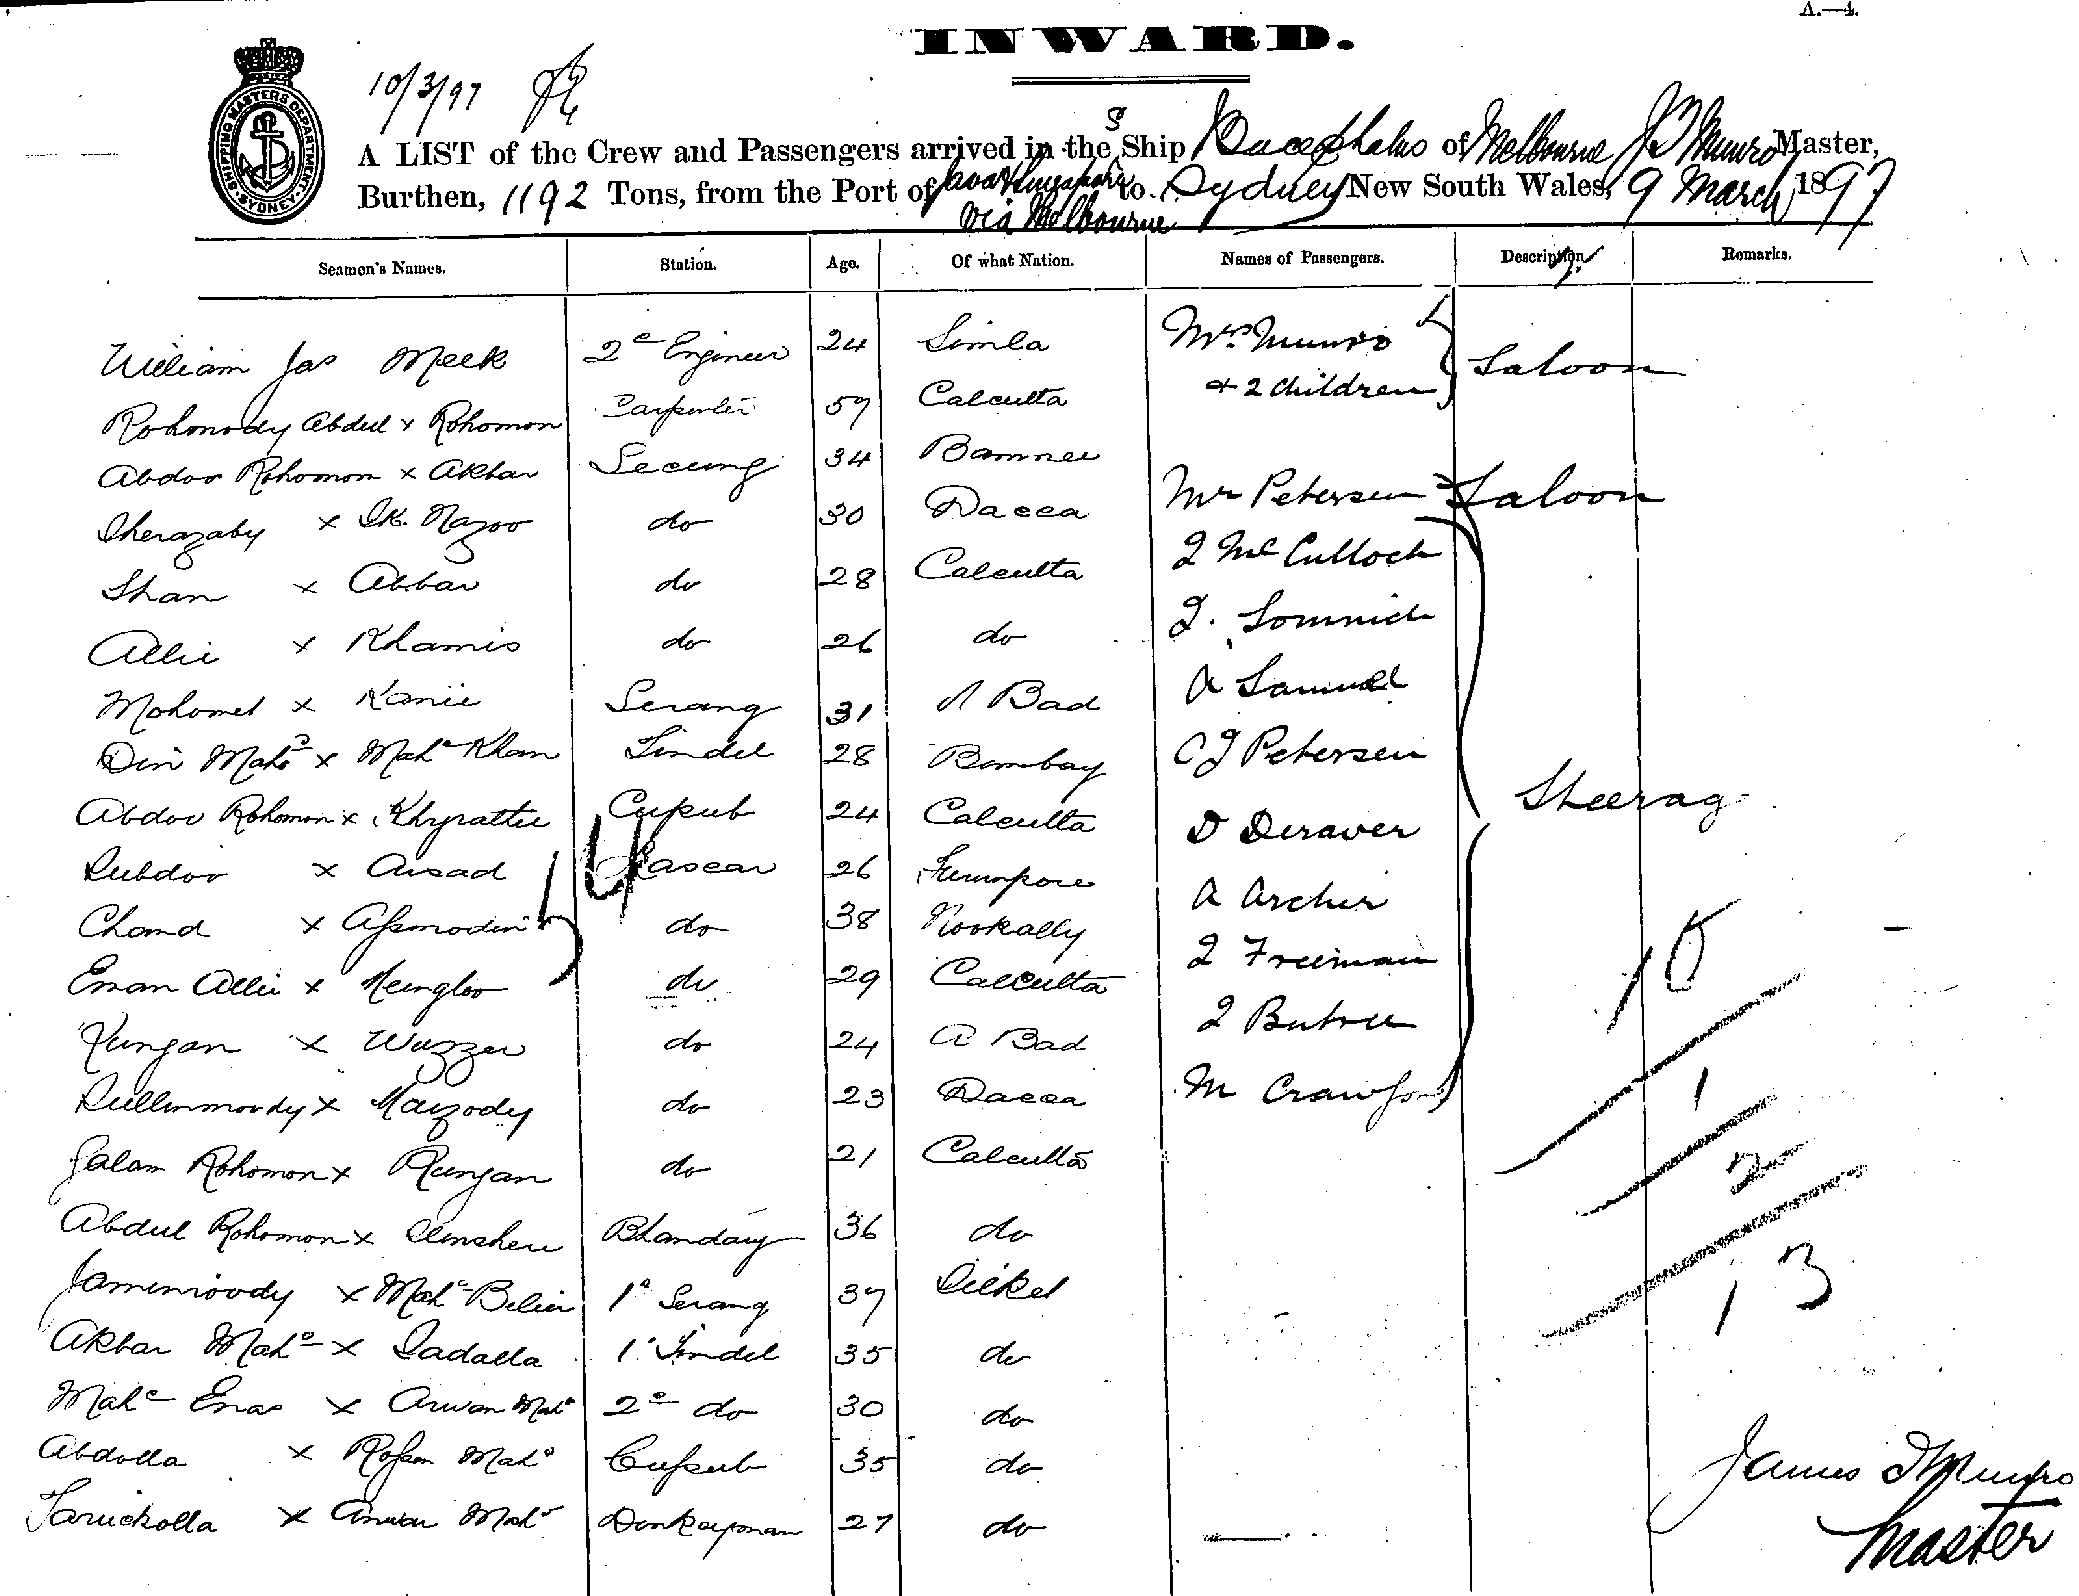 A.—4.
INWARD.
SHIPPING MASTERS DEPARTMENT SYDNEY
10/3/97
A LIST of the Crew and Passengers arrived in the S Ship Bucephalus of Melbourne J T Munro Master,
Burthen, 1192 Tons, from the Port of Java & Singapore via Melbourne to Sydney New South Wales, 9 March 1897
Seamen's Names. Station. Age. Of what Nation. Names of Passengers. Description. Remarks.
William Jas Meek 2e Engineer 24 Simla Mrs Munro
& 2 children Saloon
Rohomody Abdul x Rohomon Carpenter 59 Calcutta
Abdoo Rohomon x Akbar Secung 34 Bamnee
x Sk. Nazoo do 30 Dacca Mr Petersen Saloon
Shan x Abbar do 28 Calcutta J McCulloch
Allie x Khamis do 26 do J.
Mohomet x Kanie Serang 31 A Bad A Samuel
Din Mahd x Mahd Khan Tindel 28 Bombay C J Petersen
Abdoo Rohomon x Khyrattie Cussub 24 Calcutta D Deraver Steerag
Dubdoo x Assad Lascar 26 A Archer
14
Chand x Assmodin do 38 Nookally J Freeman
Eman Allie x Mungloo do 29 Calcutta J
10
Rungan x Wuzzer do 24 A Bad M Crawford
x Maizody do 23 Dacca
1
Galam Rohomon x Rungan do 21 Calcutta
2
Abdul Rohomon x Bhandary 36 do
Jamemoody x Mahd 1e Serang 37 Silhet
13
Akbar Mahd x Sadalla 1e Tindel 35 do
Mahd x Anwar Mahd 2e do 30 do
Abdolla x Mahd Cussub 35 do
x Anwar Mahd Donkeyman 27 do
James T Munro
Master